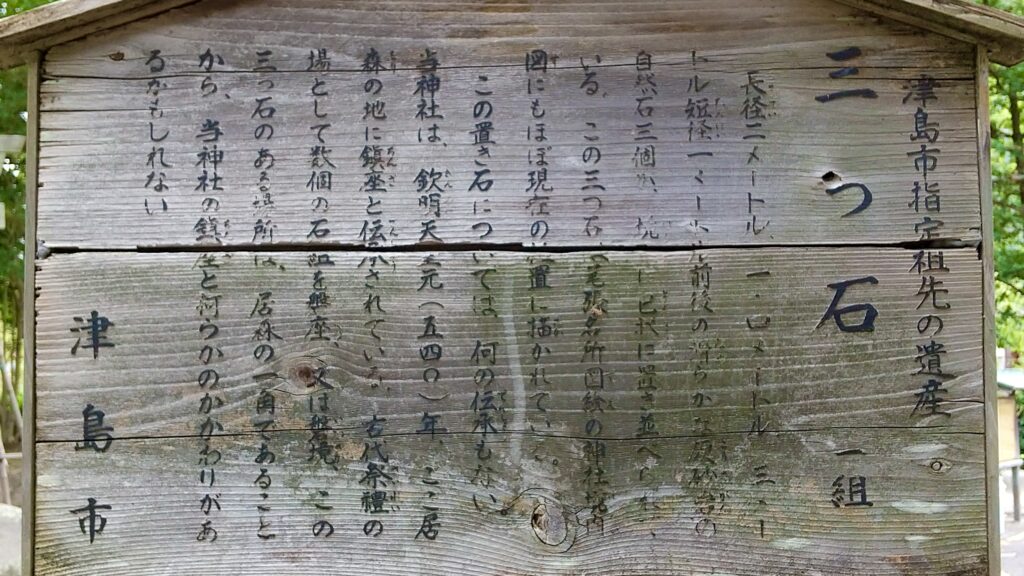 津島市指定祖先の遺産
三つ石 一組
長径二メートル、一・ロメートル、三メー
トル短径一メートル前後の滑らかな原砂岩の
自然石三個が、に已状に置き並べられ、
いる。この三つ石、尾張名所図絵の神社境内
図にもほぼ現在の位置に描かれている。
この置き石については、何の伝承もない。
当神社は、欽明天皇元(五四〇)年、ここ居
森の地に鎮座と伝承されている。古代祭禮の
場として数個の石組を磐座、又は磐境、この
三つ石のある場所は、居森の一角であること
から、当神社の鎮座と何らかのかかわりがあ
るかもしれない
津島市